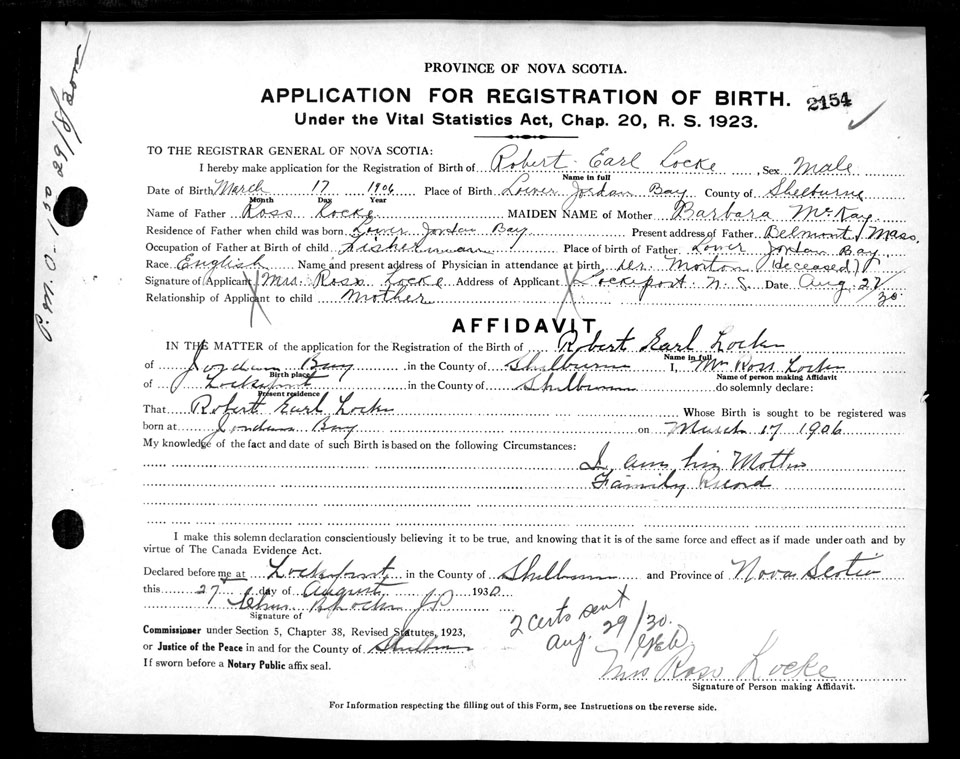 PROVINCE OF NOVA SCOTIA.
APPLICATION FOR REGISTRATION OF BIRTH. 2154
Under the Vital Statistics Act, Chap. 20, R. S. 1923.
TO THE REGISTRAR GENERAL OF NOVA SCOTIA:
I hereby make application for the Registration of Birth of Robert Earl Locke, Sex Male
Name in full
Date of Birth March 17 1906 Place of Birth Lower Jordan Bay County of Shelburne
Month Day Year
Name of Father Ross Locke MAIDEN NAME of Mother Barbara McKay
Residence of Father when child was born Lower Jordan Bay Present address of Father Belmont, Mass.
Occupation of Father at Birth of child Fisherman Place of birth of Father Lower Jordan Bay
Race English Name and present address of Physician in attendance at birth, Dr. Morton (deceased)
Signature of Applicant Mrs. Ross Locke Address of Applicant Lockeport N. S. Date Aug. 27/30
Relationship of Applicant to child Mother
AFFIDAVIT
IN THE MATTER of the application for the Registration of the Birth of Robert Earl Locke
Name in full
of Jordan Bay in the County of Shelburne I, Mrs Ross Locke
Birth place Name of person making Affidavit
of Lockeport in the County of Shelburne do solemnly declare:
Present residence
That Robert Earl Locke Whose Birth is sought to be registered was
born at Jordan Bay on March 17 1906
My knowledge of the fact and date of such Birth is based on the following Circumstances:
I am his Mother
Family Record
I make this solemn declaration conscientiously believing it to be true, and knowing that it is of the same force and effect as if made under oath and by
virtue of The Canada Evidence Act.
Declared before me at Lockeport in the County of Shelburne and Province of Nova Scotia
this 27 day of August 1930
Locke JP
Signature of
Commissioner under Section 5, Chapter 38, Revised Statutes, 1923,
or Justice of the Peace in and for the County of Shelburne
If sworn before a Notary Public affix seal.
2 certs sent
Aug. 29/30.
Mrs Ross Locke
Signature of Person making Affidavit.
For Information respecting the filling out of this Form, see Instructions on the reverse side.
P. M. O. 1.50 29/8/30